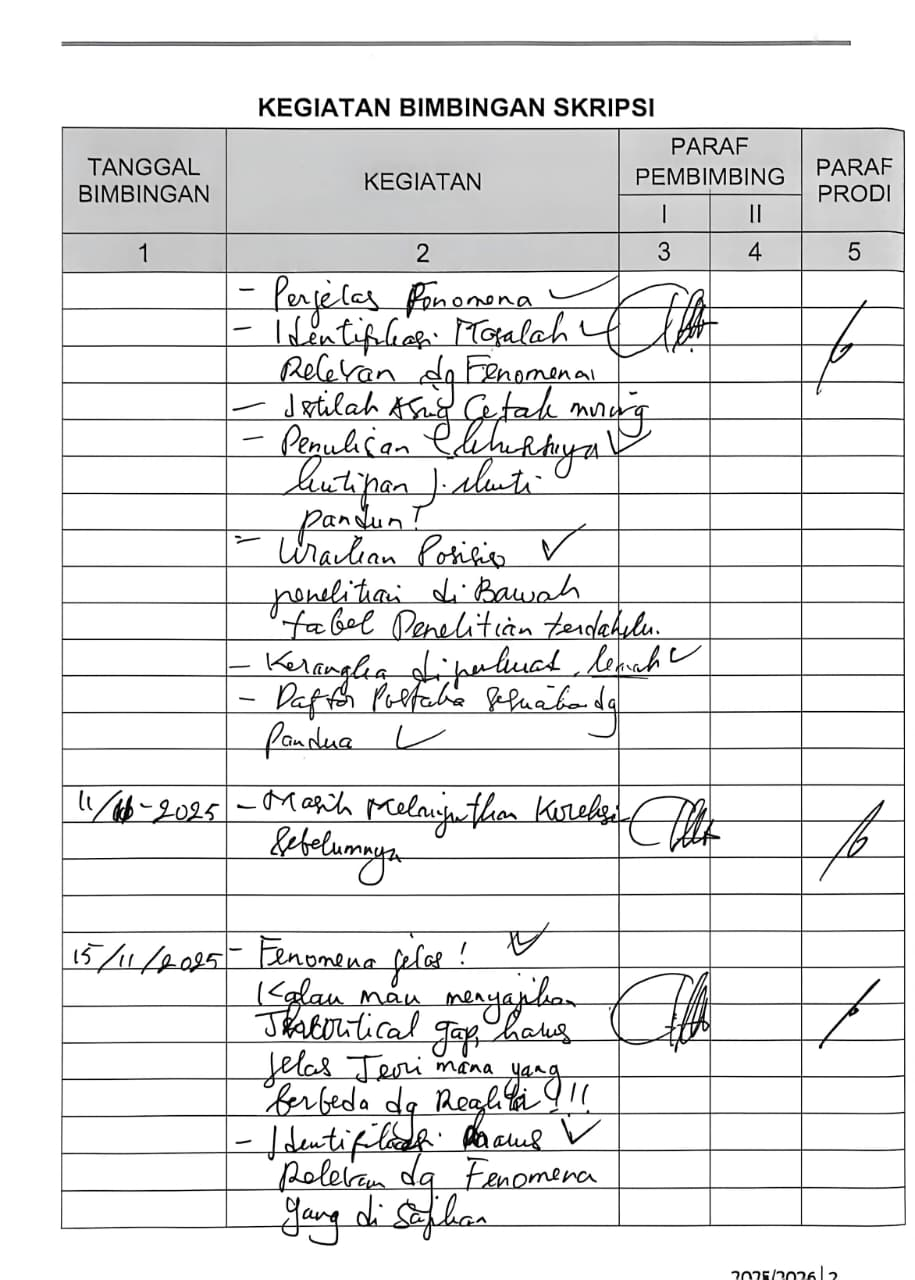 KEGIATAN BIMBINGAN SKRIPSI
TANGGAL BIMBINGAN
KEGIATAN
PARAF PEMBIMBING
PARAF PRODI
I
II
1
2
3
4
5
- Perjelas Fonomena
- Identifikasi Masalah
Relevan dg Fenomena
- Istilah Asing Cetak miring
- Penulisan
kutipan
- Uraikan Posisi
penelitian di Bawah
tabel Penelitian terdahulu.
- Kerangka diperkuat, lemah
- Daftar Pustaka sesuaikan dg
Pandua
11/ -2025 - Masih Melanjutkan Koreksi
Sebelumnya
15/11/2025 - Fenomena jelas!
Kalau mau menyajikan
gap, harus
jelas Teori mana yang
berbeda dg Realita !!!
- Identifikasi harus
Relevan dg Fenomena
yang di Sajikan
2025/2026 | 2